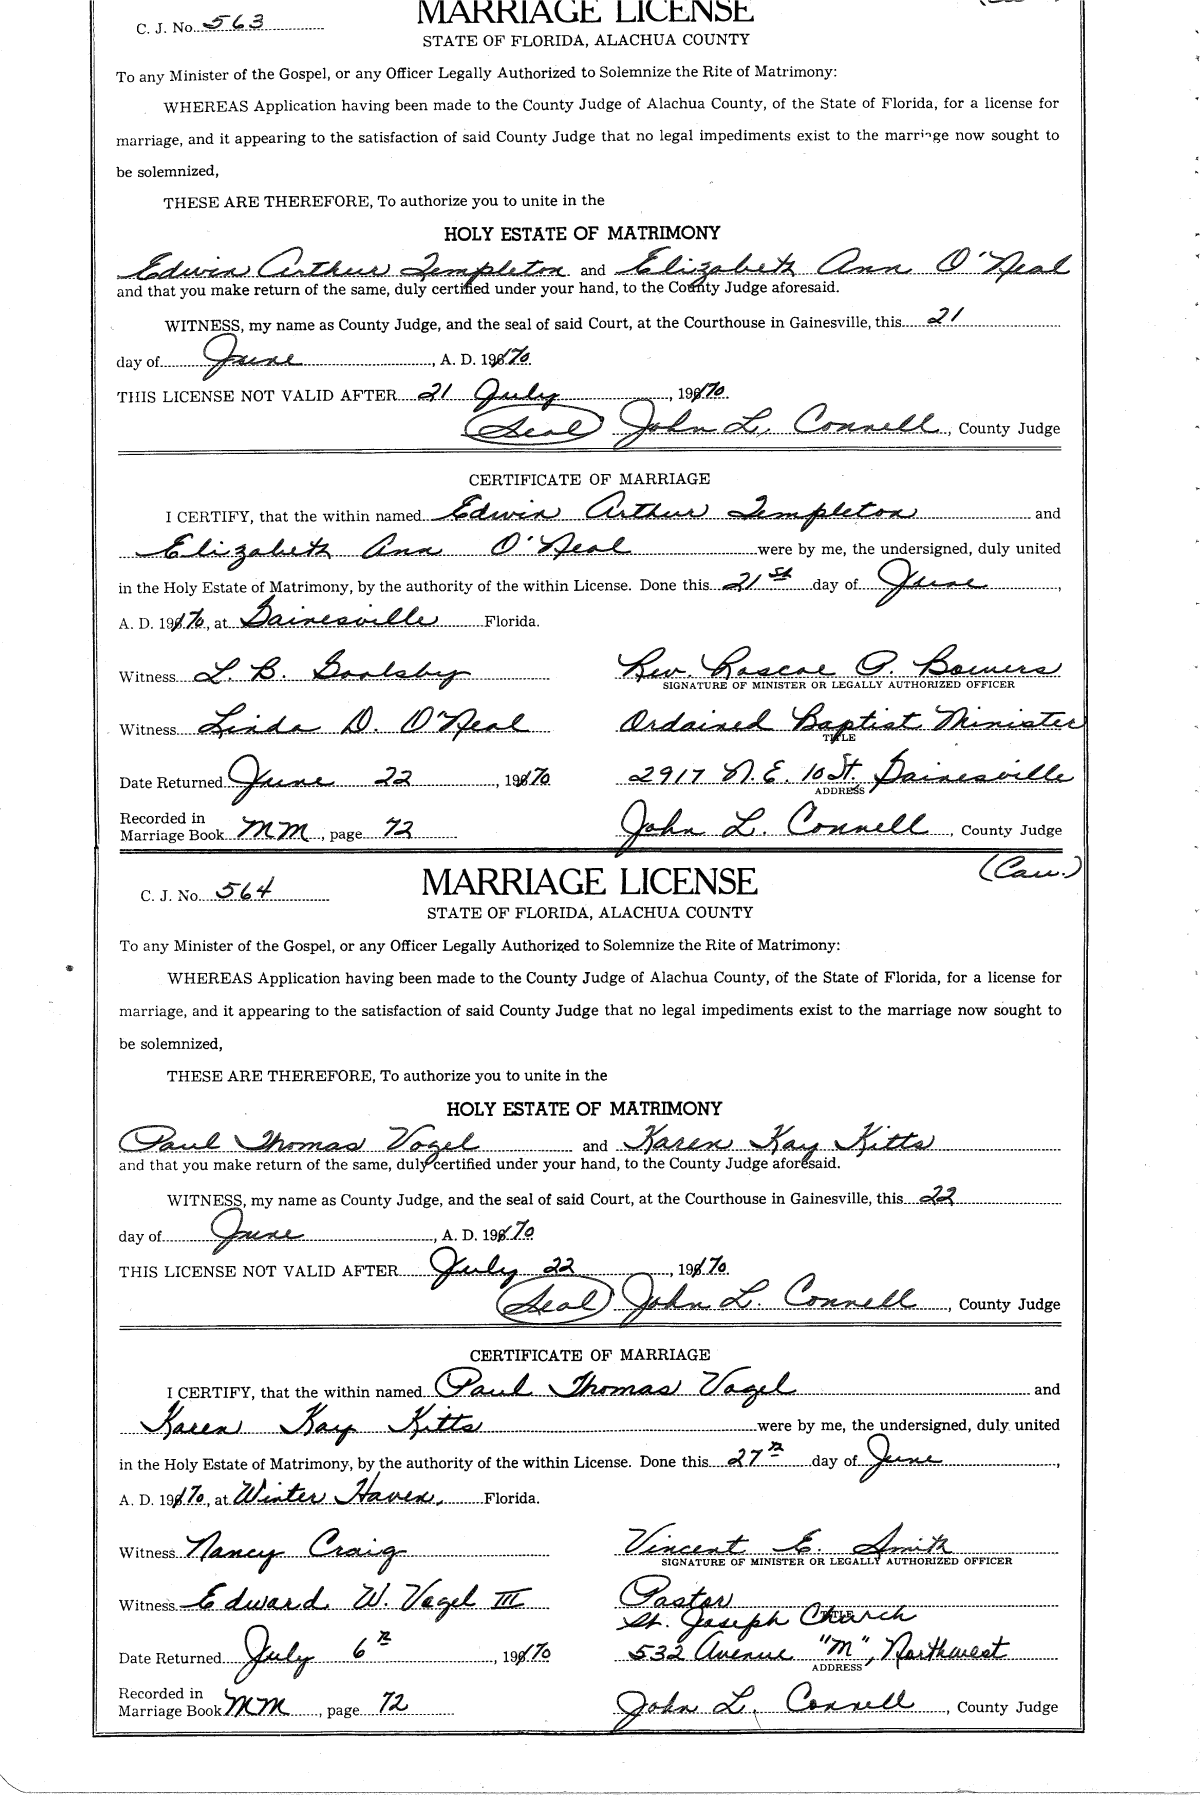 C. J. No. 563
MARRIAGE LICENSE
STATE OF FLORIDA, ALACHUA COUNTY
To any Minister of the Gospel, or any Officer Legally Authorized to Solemnize the Rite of Matrimony:
WHEREAS Application having been made to the County Judge of Alachua County, of the State of Florida, for a license for
marriage, and it appearing to the satisfaction of said County Judge that no legal impediments exist to the marriage now sought to
be solemnized,
THESE ARE THEREFORE, To authorize you to unite in the
HOLY ESTATE OF MATRIMONY
Edwin Arthur Templeton and Elizabeth Ann O'Neal
and that you make return of the same, duly certified under your hand, to the County Judge aforesaid.
WITNESS, my name as County Judge, and the seal of said Court, at the Courthouse in Gainesville, this 21
day of June, A. D. 1970
THIS LICENSE NOT VALID AFTER 21 July, 1970.
(Seal) John L. Connell, County Judge
CERTIFICATE OF MARRIAGE
I CERTIFY, that the within named Edwin Arthur Templeton and
Elizabeth Ann O'Neal were by me, the undersigned, duly united
in the Holy Estate of Matrimony, by the authority of the within License. Done this 21st day of June,
A. D. 1970, at Gainesville Florida.
Witness L. B. Goolsby Rev. Roscoe A. Bowers
SIGNATURE OF MINISTER OR LEGALLY AUTHORIZED OFFICER
Witness Linda D. O'Neal Ordained Baptist Minister
TITLE
Date Returned June 22, 1970 2917 N.E. 10 St. Gainesville
ADDRESS
Recorded in
Marriage Book MM, page 72 John L. Connell, County Judge
(Cau.)
C. J. No. 564
MARRIAGE LICENSE
STATE OF FLORIDA, ALACHUA COUNTY
To any Minister of the Gospel, or any Officer Legally Authorized to Solemnize the Rite of Matrimony:
WHEREAS Application having been made to the County Judge of Alachua County, of the State of Florida, for a license for
marriage, and it appearing to the satisfaction of said County Judge that no legal impediments exist to the marriage now sought to
be solemnized,
THESE ARE THEREFORE, To authorize you to unite in the
HOLY ESTATE OF MATRIMONY
Paul Thomas Vogel and Karen Kay Kitts
and that you make return of the same, duly certified under your hand, to the County Judge aforesaid.
WITNESS, my name as County Judge, and the seal of said Court, at the Courthouse in Gainesville, this 22
day of June, A. D. 1970
THIS LICENSE NOT VALID AFTER July 22, 1970.
(Seal) John L. Connell, County Judge
CERTIFICATE OF MARRIAGE
I CERTIFY, that the within named Paul Thomas Vogel and
Karen Kay Kitts were by me, the undersigned, duly united
in the Holy Estate of Matrimony, by the authority of the within License. Done this 27th day of June,
A. D. 1970, at Winter Haven, Florida.
Witness Nancy Craig Vincent E. Smith
SIGNATURE OF MINISTER OR LEGALLY AUTHORIZED OFFICER
Witness Edward W. Vogel III Pastor
St. Joseph Church
TITLE
Date Returned July 6th, 1970 532 Avenue "M", Northwest
ADDRESS
Recorded in
Marriage Book MM, page 72 John L. Connell, County Judge